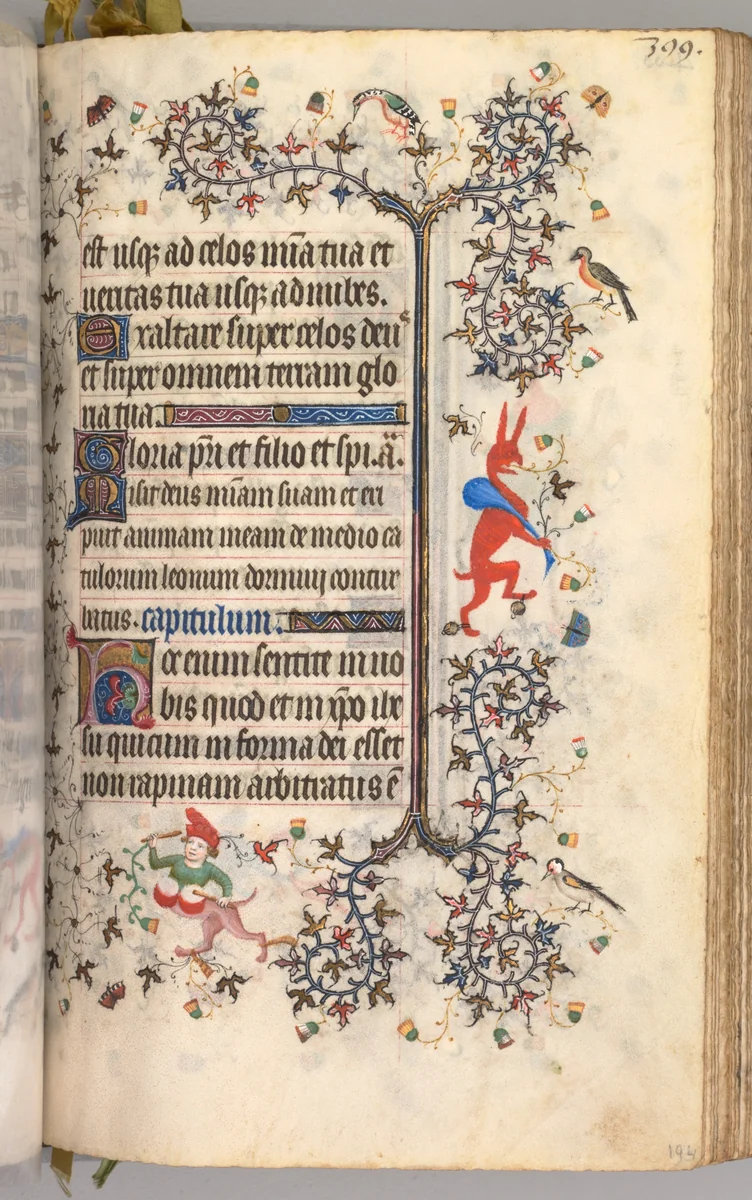 399.
est usq; ad celos mīa tua et
ueritas tua usq; ad nubes.
Exaltare super celos deus
et super omnem terram glo
ria tua.
Gloria pr̄i et filio et spi.ā.
Misit deus mīam suam et eri
puit animam meam de medio ca
tulorum leonum dormiui contur
batus. capitulum.
Hoc enim sentite in uo
bis quod et in xp̄o ihe
su qui cum in forma dei esset
non rapinam arbitratus ē
194